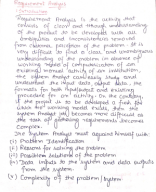 Requirement Analysis
Introduction
Requirement Analysis is the activity that
consists of clear and thorough understanding
of the product to be developed with all
ambiguities and inconsistencies removed
from customer perception of the problem. It is
very difficult to find a clear and unambiguous
understanding of the problem in absence of
working model of computerization of an
existing manual activity of an institution.
The system Analyst carefully study and
understand the input data output data
formats for both input/output and existing
procedure for an activity. In the context
of the project to be developed if task
there for working model exists, then the
System Analyst job become more difficult as
the task of obtaining requirements becomes
Complex.
The System Analyst must acquaint himself with:-
(i) Problem Identification
(ii) Reasons for solving the problem
(iii) Possible solutions of the problem
(iv) Data inputs to the system and data outputs
from the system
(v) Complexity of the problem/System